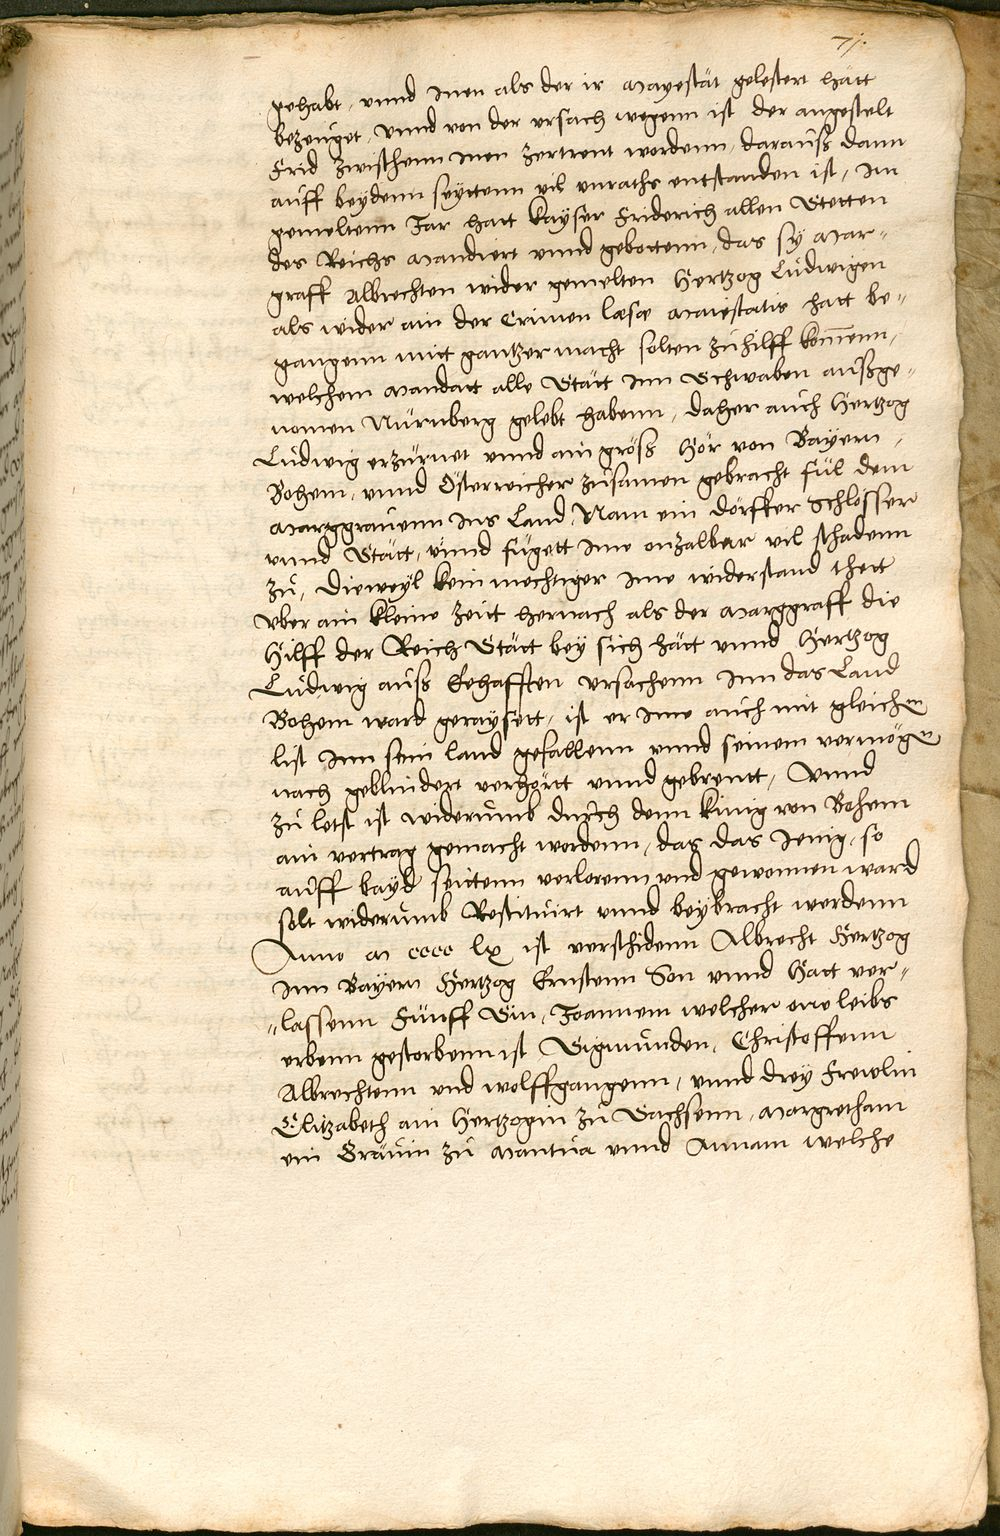 71.
gehabt, vnnd Inen als der ir Mayestät gelestert hätt
bezeuget, vnnd von der vrsach wegenn ist der angestelt
Frid zwischenn Inen zertrent wordenn, darauß dann
auff beydenn seyttenn vil vnraths entstanden ist, Im
gemeltenn Jar hatt kayser Friderich allen Stetten
des Reichs Mandiert vnnd gebottenn, das sy Mar-
graff Albrechten wider gemelten Hertzog Ludwigen
als wider ain der Crimen læsæ Maiestatis hatt be-
gangenn mitt gantzer macht solten zu hilff kom̄enn,
welchem Mandatt alle Stätt Inn Schwaben außge-
nomen Nürnberg gelebt habenn, daher auch Hertzog
Ludwig erzürnet vnnd ain gröss Hör von Bayern,
Bohem, vnnd Österreicher zusamen gebracht fül dem
Marggrauenn Ins Land, Nam ein dörffer Schlösser
vnnd Stätt, vnnd fügett Ime onzalbar vil schadenn
zu, Dieweyl kein mechtiger Ime widerstand thett
vber ain kleine zeitt hernach als der Marggraff die
Hilff der Reich Stätt bey sich hätt vnnd Hertzog
Ludwig auß Eehafften vrsachenn Inn das Land
Bohem ward geraysett, ist er Ime auch mit gleichen
list Inn sein land gefallenn vnnd seinem vermögen
nach geblindert verhörtt vnnd gebrentt, Vnnd
zu letst ist widerumb durch denn künig von Bohem
ain vertrag gemacht wordenn, das das Jenig, so
auff bayd seittenn verlorenn vnd gewonnen ward
solt widerumb Restituirt vnnd beybracht werdenn
Anno M cccc lx ist verschidenn Albrecht Hertzog
Inn Bayern Hertzog Ernstenn Son vnnd Hatt ver-
lassenn Fünff Sün, Joannem welcher one leibs
erbenn gestorbenn ist Sigmunden, Christoffenn
Albrechtenn vnd wolffgangenn, vnnd drey Frewlin
Elizabeth ain Hertzogin zu Sachsenn, Margretham
ein Gräuin zu Mantua vnnd Annam welche